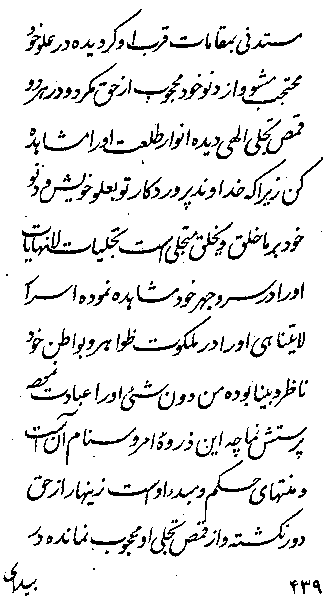 مستدنی بمقامات قرب او گردیده در علو خود
محتجب مشو و از دنو خود محجوب از حق مگرد و در هر دو
قمص تجلی الهی دیده انوار طلعت او را مشاهده
کن زیرا که خداوند پروردگار تو بعلو خویش و دنو
خود بر ما خلق و یخلق متجلی است تجلیات لانهایات
او را در سر و جهر خود مشاهده نموده اسرار
لایتناهی او را در ملکوت ظواهر و بواطن خود
ناظر و بینا بوده من دون شئی او را عبادت محضه
پرستش نما چه این ذروهٔ امر و سنام آن است
و منتهای حکم و مبدء او است زینهار از حق
دور نگشته و از قمص تجلی او محجوب نمانده در
بیدای
۴۳۹